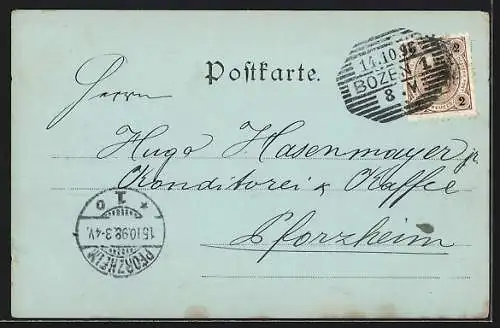 14.10.98
BOZEN 1
8 · M
2
2
Postkarte.
Herrn
Hugo Hasenmayer jr.
Konditorei & Kaffee
Pforzheim
PFORZHEIM
15.10.98.3-4V.
* 1 c